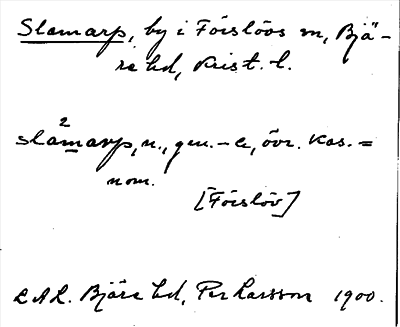 Slamarp, by i Förslövs sn, Bjä-
re hd, Krist. l.
2
slamarp, n., gen. - a, övr. kas. =
nom.
[Förslöv]
L A L. Bjäre hd, Per Larsson 1900.